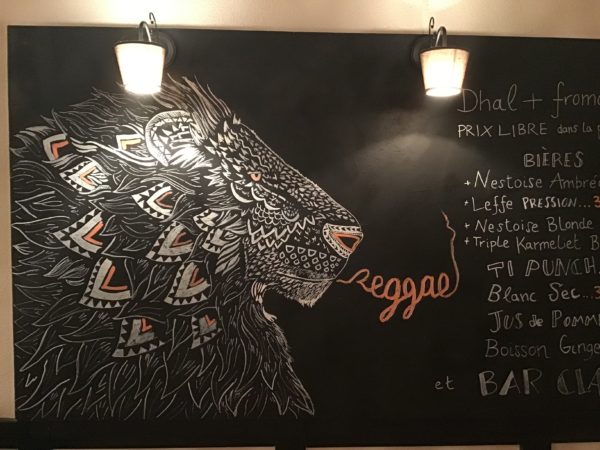 Reggae
Dhal + froma
PRIX LIBRE dans la
BIÈRES
+ Nestoise Ambré
+ Leffe PRESSION...3
+ Nestoise Blonde
+ Triple Karmeliet B
TI PUNCH
Blanc Sec...3
JUS de POMM
Boisson Ginge
et BAR CLA